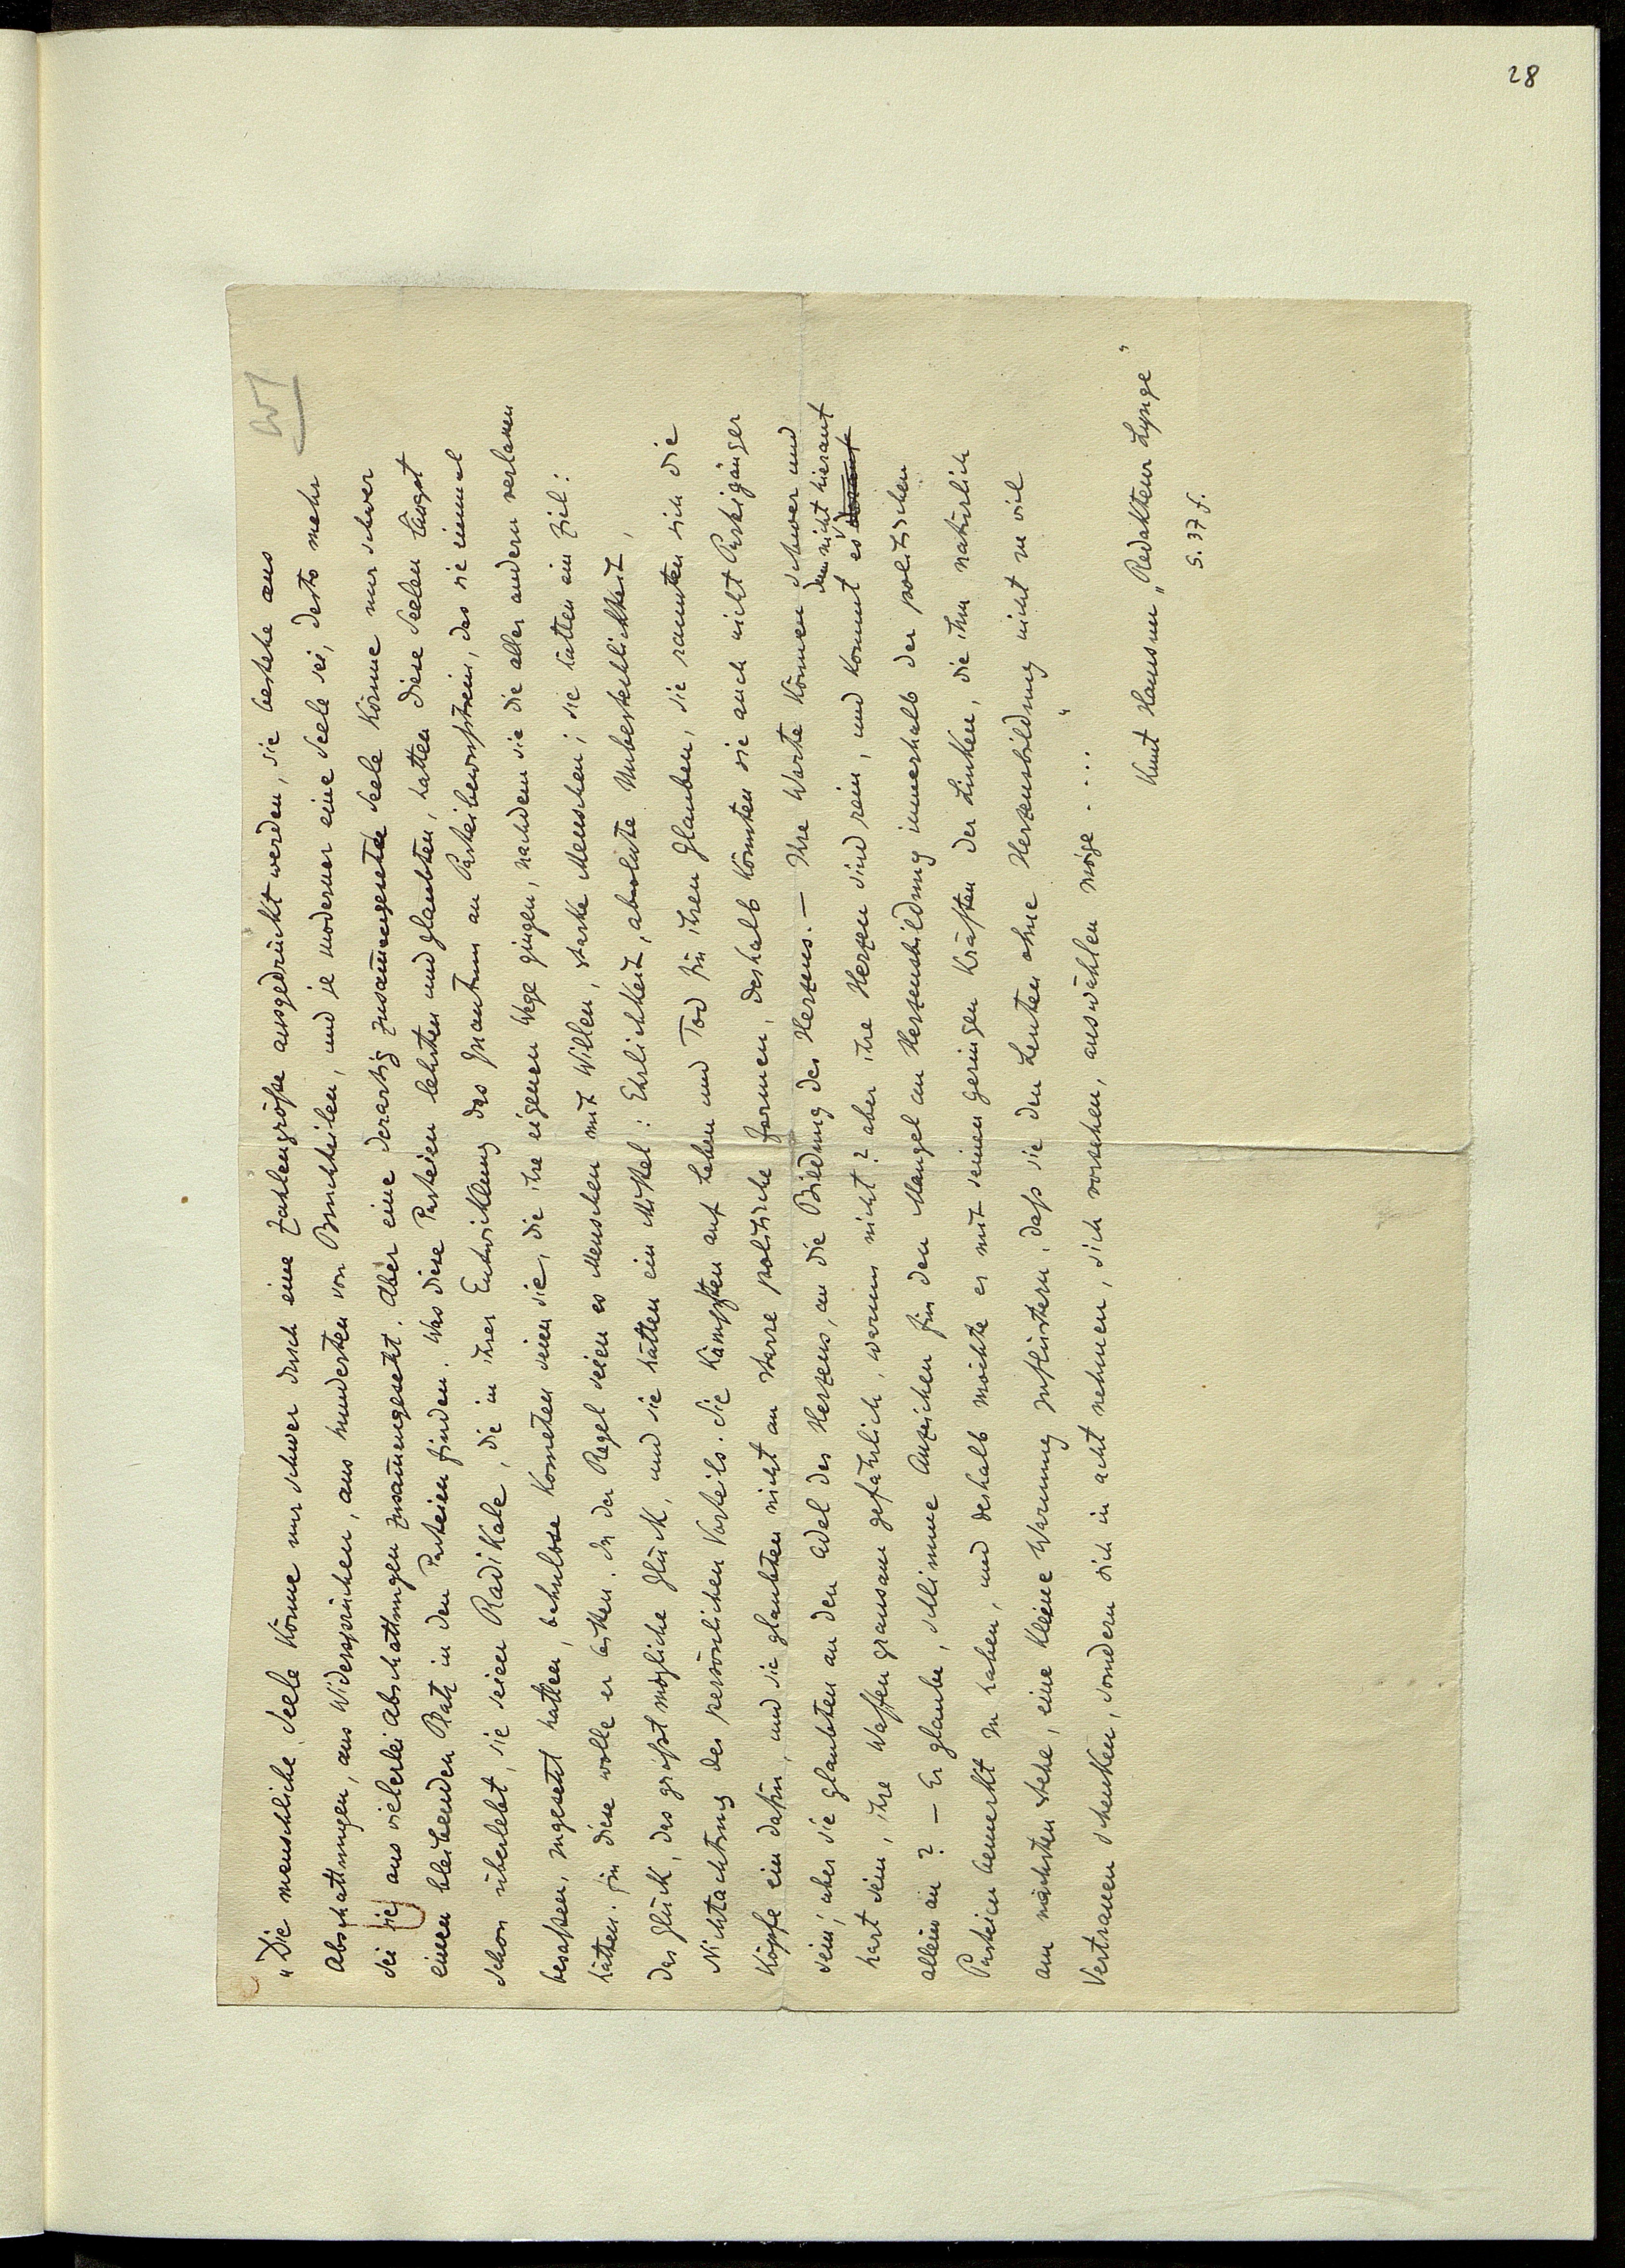 28
W
„Die menschliche Seele könne nur schwer durch eine Zahlengröße ausgedrückt werden, sie bestehe aus
Abschattungen, aus Widersprüchen, aus hunderten von Bruchteilen, und je moderner eine Seele sei, desto mehr
sei sie aus vielerlei Abschattungen zusammengesetzt. Aber eine derartig zusammengesetzte Seele könne nur schwer
einen bleibenden Platz in den Parteien finden. Was diese Parteien lehrten und glaubten, hatten diese Seelen längst
schon überlebt, sie seien Radikale, die in ihrer Entwicklung das Quantum an Parteibewußtsein, das sie einmal
besaßen, zugesetzt hatten, bahnlose Kometen seien sie, die ihre eigenen Wege gingen, nachdem sie die aller andern verlassen
hätten. Für diese wolle er bitten. In der Regel seien es Menschen mit Willen, starke Menschen; sie hätten ein Ziel:
das Glück, das größtmögliche Glück, und sie hätten ein Mittel: Ehrlichkeit, absolute Unbestechlichkeit,
Nichtachtung des persönlichen Vorteils. Sie kämpften auf Leben und Tod für ihren Glauben, sie rannten sich die
Köpfe ein dafür, und sie glaubten nicht an starre politische Formen, deshalb könnten sie auch nicht Parteigänger
sein; aber sie glaubten an den Adel des Herzens, an die Bildung des Herzens. – Ihre Worte können schwer und
hart sein, ihre Waffen grausam gefährlich, warum nicht? aber ihre Herzen sind rein, und kommt es denn nicht hierauf
allein an? – Er glaube, schlimme Anzeichen für den Mangel an Herzensbildung innerhalb der politischen
Parteien bemerkt zu haben, und deshalb möchte er mit seinen geringen Kräften der Linken, die ihm natürlich
am nächsten stehe, eine kleine Warnung zuflüstern, daß sie den Leuten ohne Herzensbildung nicht zu viel
Vertrauen schenken, sondern sich in acht nehmen, sich vorsehen, auswählen möge . . . . "
Knut Hamsun „Redakteur Lynge"
S. 37 f.